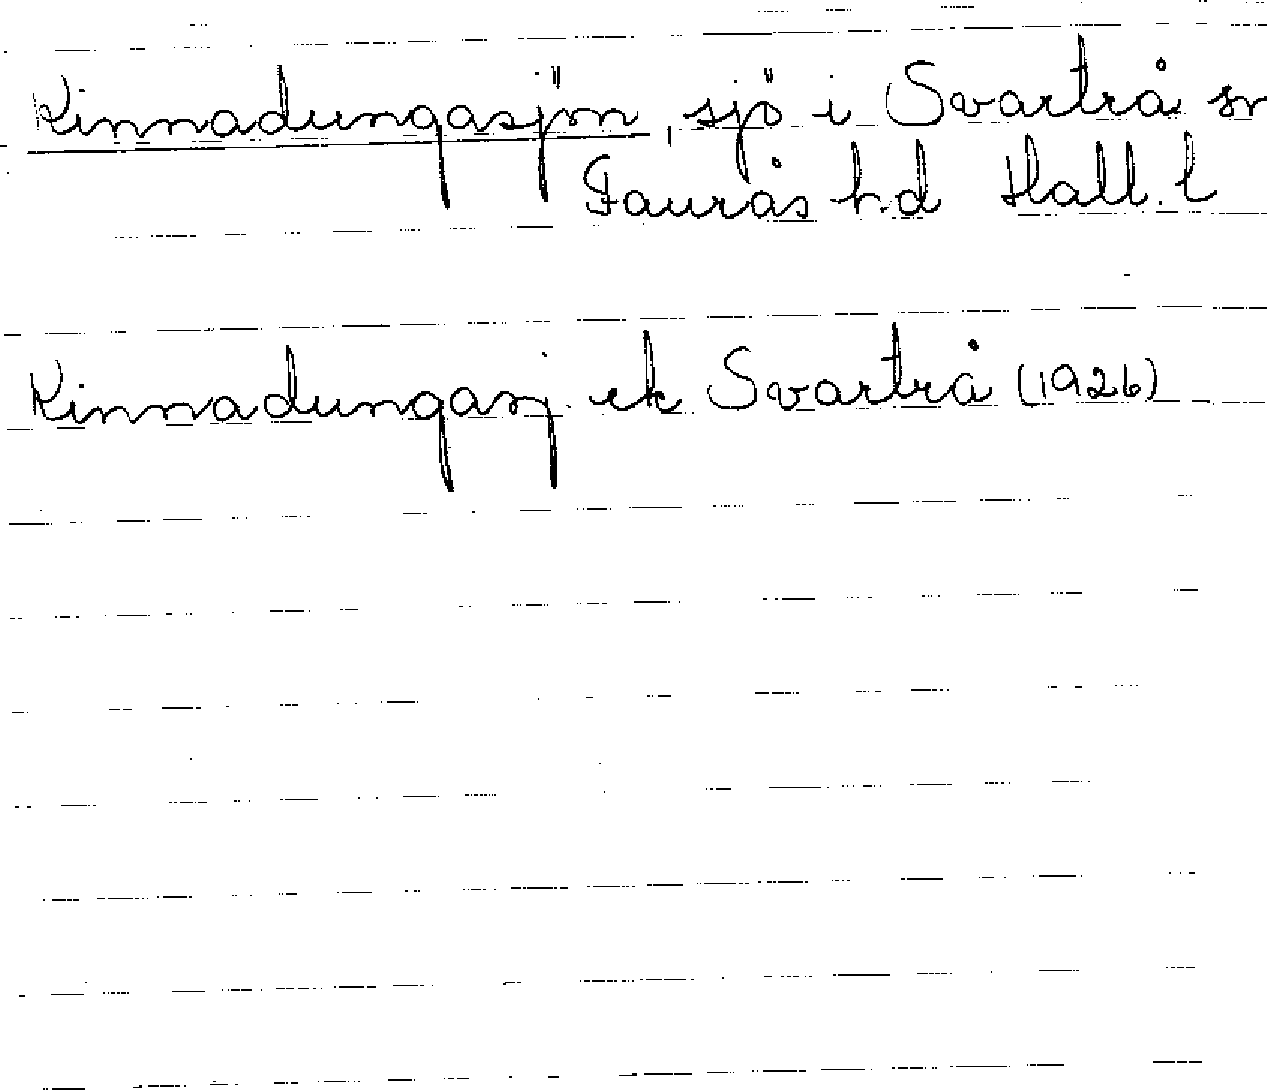 Kinnadungasjön, sjö i Svartrå sn
Faurås hd Hall. l
Kinnadungasj. ek Svartrå (1926)